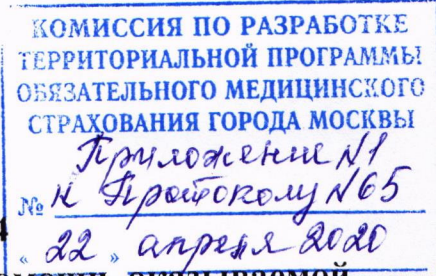 КОМИССИЯ ПО РАЗРАБОТКЕ
ТЕРРИТОРИАЛЬНОЙ ПРОГРАММЫ
ОБЯЗАТЕЛЬНОГО МЕДИЦИНСКОГО
СТРАХОВАНИЯ ГОРОДА МОСКВЫ
Приложение N1
№ к Протоколу N65
« 22 » апреля 2020